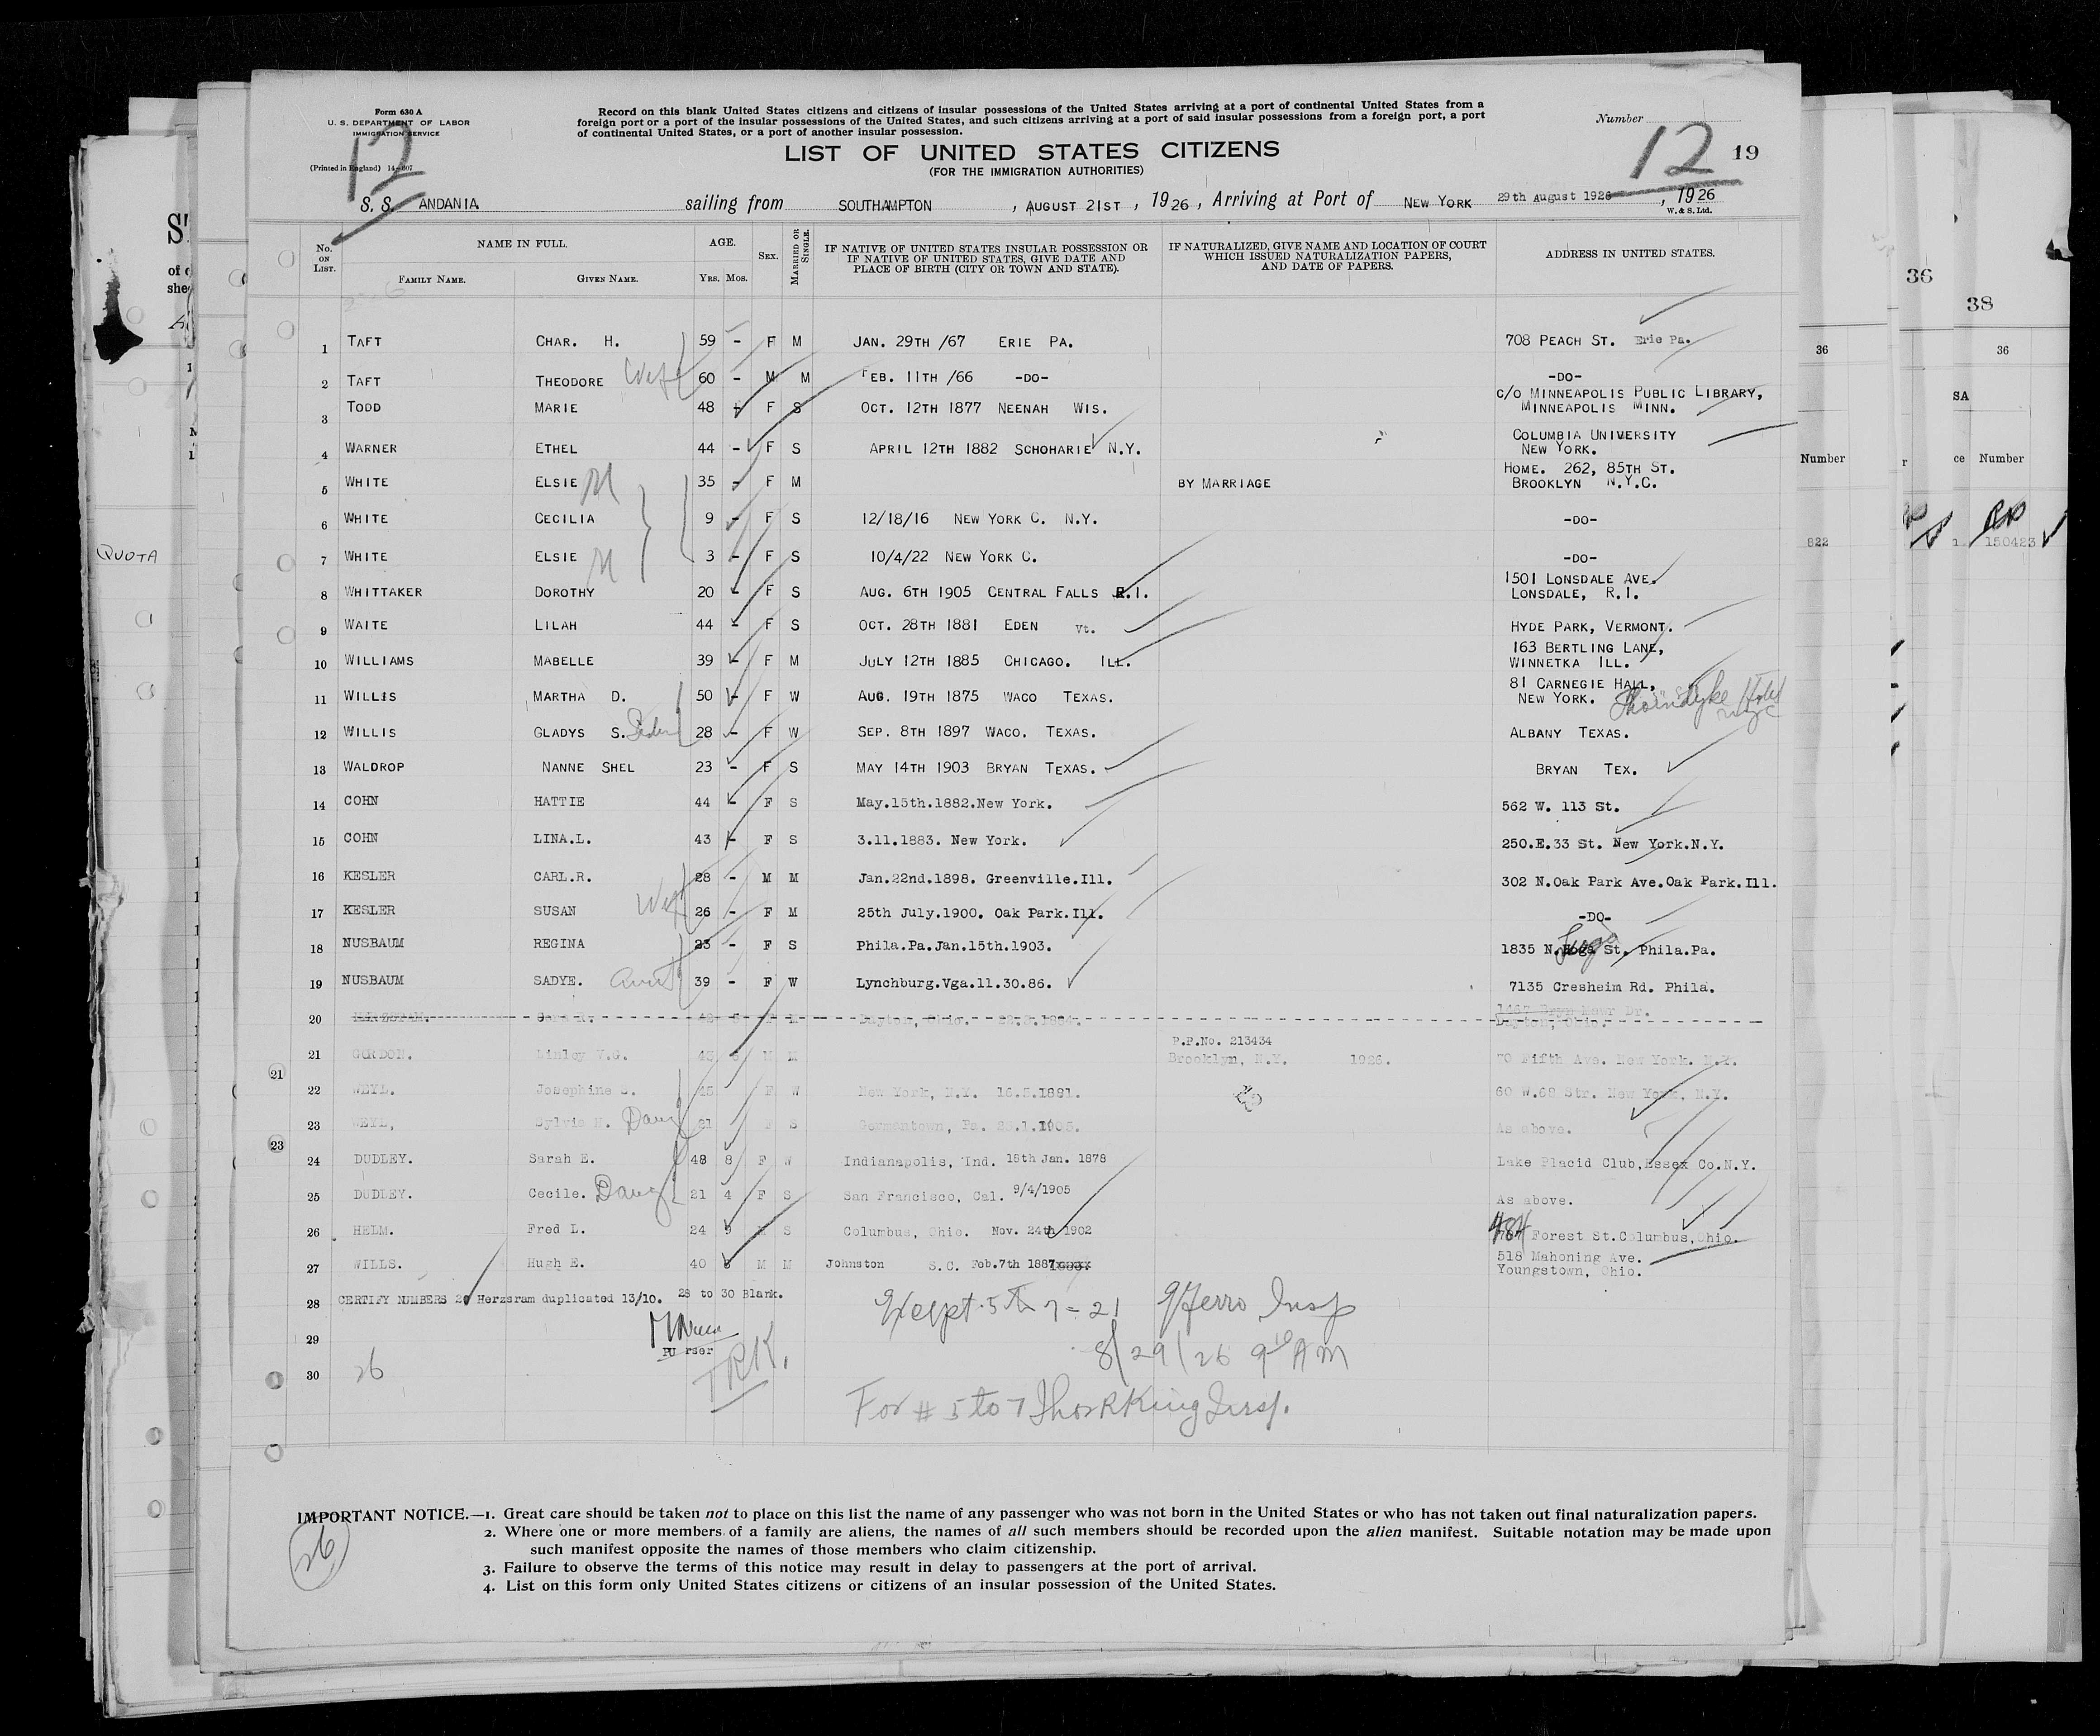 Form 630 A
U. S. DEPARTMENT OF LABOR
IMMIGRATION SERVICE
(Printed in England) 14-607
12
Record on this blank United States citizens and citizens of insular possessions of the United States arriving at a port of continental United States from a
foreign port or a port of the insular possessions of the United States, and such citizens arriving at a port of said insular possessions from a foreign port, a port
of continental United States, or a port of another insular possession.
Number
12 19
LIST OF UNITED STATES CITIZENS
(FOR THE IMMIGRATION AUTHORITIES)
S. S. ANDANIA sailing from SOUTHAMPTON, AUGUST 21ST, 1926, Arriving at Port of NEW YORK 29th August 1926, 1926
W. & S. Ltd.
No. ON LIST. NAME IN FULL. AGE. SEX. MARRIED OR SINGLE. IF NATIVE OF UNITED STATES INSULAR POSSESSION OR IF NATIVE OF UNITED STATES, GIVE DATE AND PLACE OF BIRTH (CITY OR TOWN AND STATE). IF NATURALIZED, GIVE NAME AND LOCATION OF COURT WHICH ISSUED NATURALIZATION PAPERS, AND DATE OF PAPERS. ADDRESS IN UNITED STATES.
FAMILY NAME. GIVEN NAME. YRS. MOS.
1 TAFT CHAR. H. 59 - F M JAN. 29TH /67 ERIE PA. 708 PEACH ST. Erie Pa.
2 TAFT THEODORE Wife 60 - M M FEB. 11TH /66 -DO- -DO-
3 TODD MARIE 48 - F S OCT. 12TH 1877 NEENAH WIS. C/O MINNEAPOLIS PUBLIC LIBRARY, MINNEAPOLIS MINN.
4 WARNER ETHEL 44 - F S APRIL 12TH 1882 SCHOHARIE N.Y. COLUMBIA UNIVERSITY NEW YORK.
5 WHITE ELSIE M 35 - F M BY MARRIAGE HOME. 262, 85TH ST. BROOKLYN N.Y.C.
6 WHITE CECILIA 9 - F S 12/18/16 NEW YORK C. N.Y. -DO-
7 WHITE ELSIE M 3 - F S 10/4/22 NEW YORK C. -DO-
8 WHITTAKER DOROTHY 20 - F S AUG. 6TH 1905 CENTRAL FALLS R.I. 1501 LONSDALE AVE. LONSDALE, R.I.
9 WAITE LILAH 44 - F S OCT. 28TH 1881 EDEN Vt. HYDE PARK, VERMONT.
10 WILLIAMS MABELLE 39 - F M JULY 12TH 1885 CHICAGO. ILL. 163 BERTLING LANE, WINNETKA ILL.
11 WILLIS MARTHA D. 50 - F W AUG. 19TH 1875 WACO TEXAS. 81 CARNEGIE HALL, NEW YORK. Thorndyke Hotel nyc
12 WILLIS GLADYS S. 28 - F W SEP. 8TH 1897 WACO. TEXAS. ALBANY TEXAS.
13 WALDROP NANNE SHEL 23 - F S MAY 14TH 1903 BRYAN TEXAS. BRYAN TEX.
14 COHN HATTIE 44 - F S May.15th.1882.New York. 562 W. 113 St.
15 COHN LINA.L. 43 - F S 3.11.1883. New York. 250.E.33 St. New York.N.Y.
16 KESLER CARL.R. 28 - M M Jan.22nd.1898. Greenville.Ill. 302 N.Oak Park Ave.Oak Park.Ill.
17 KESLER SUSAN Wife 26 - F M 25th July.1900. Oak Park.Ill. -DO-
18 NUSBAUM REGINA 23 - F S Phila.Pa.Jan.15th.1903. 1835 N. St. Phila.Pa.
19 NUSBAUM SADYE. Aunt 39 - F W Lynchburg.Vga.11.30.86. 7135 Cresheim Rd. Phila.
20 Dayton, Ohio. Dr. Dayton, Ohio.
21 GORDON. Linley V.G. 43 M M P.P.No. 213434 Brooklyn, N.Y. 1926. 70 Fifth Ave. New York. N.Y.
21
22 WEYL. Josephine S. 45 F W New York, N.Y. 16.5.1881. 60 W.68 Str. New York, N.Y.
23 WEYL, Sylvia N. Daug 21 F S Germantown, Pa. 23.1.1905. As above.
23
24 DUDLEY. Sarah E. 48 8 F W Indianapolis, Ind. 18th Jan. 1878 Lake Placid Club,Essex Co.N.Y.
25 DUDLEY. Cecile. Daug 21 4 F S San Francisco, Cal. 9/4/1905 As above.
26 HELM. Fred L. 24 9 M S Columbus, Ohio. Nov. 24th 1902 484 Forest St.Columbus,Ohio.
27 WILLS. Hugh E. 40 6 M M Johnston S.C. Feb.7th 1887 518 Mahoning Ave. Youngstown, Ohio.
28 CERTIFY NUMBERS 20 Herzsram duplicated 13/10. 28 to 30 Blank.
Except 5 to 7 - 21 Insp
29 PU rser
8/29/26 9 10 AM
30 26 TRK.
For # 5 to 7 Thor R King Insp.
IMPORTANT NOTICE.—1. Great care should be taken not to place on this list the name of any passenger who was not born in the United States or who has not taken out final naturalization papers.
2. Where one or more members of a family are aliens, the names of all such members should be recorded upon the alien manifest. Suitable notation may be made upon
such manifest opposite the names of those members who claim citizenship.
3. Failure to observe the terms of this notice may result in delay to passengers at the port of arrival.
4. List on this form only United States citizens or citizens of an insular possession of the United States.
26
QUOTA
36
38
36
36
SA
Number
ce Number
822
150423